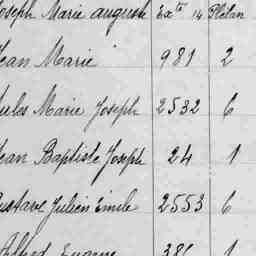 oseph Marie auguste Exte 14 Plélan
Jean Marie 981 2
ules Marie Joseph 2532 6
ean Baptiste Joseph 24 1
ustave Julien Emile 2553 6
Alfred Eugene 386 1